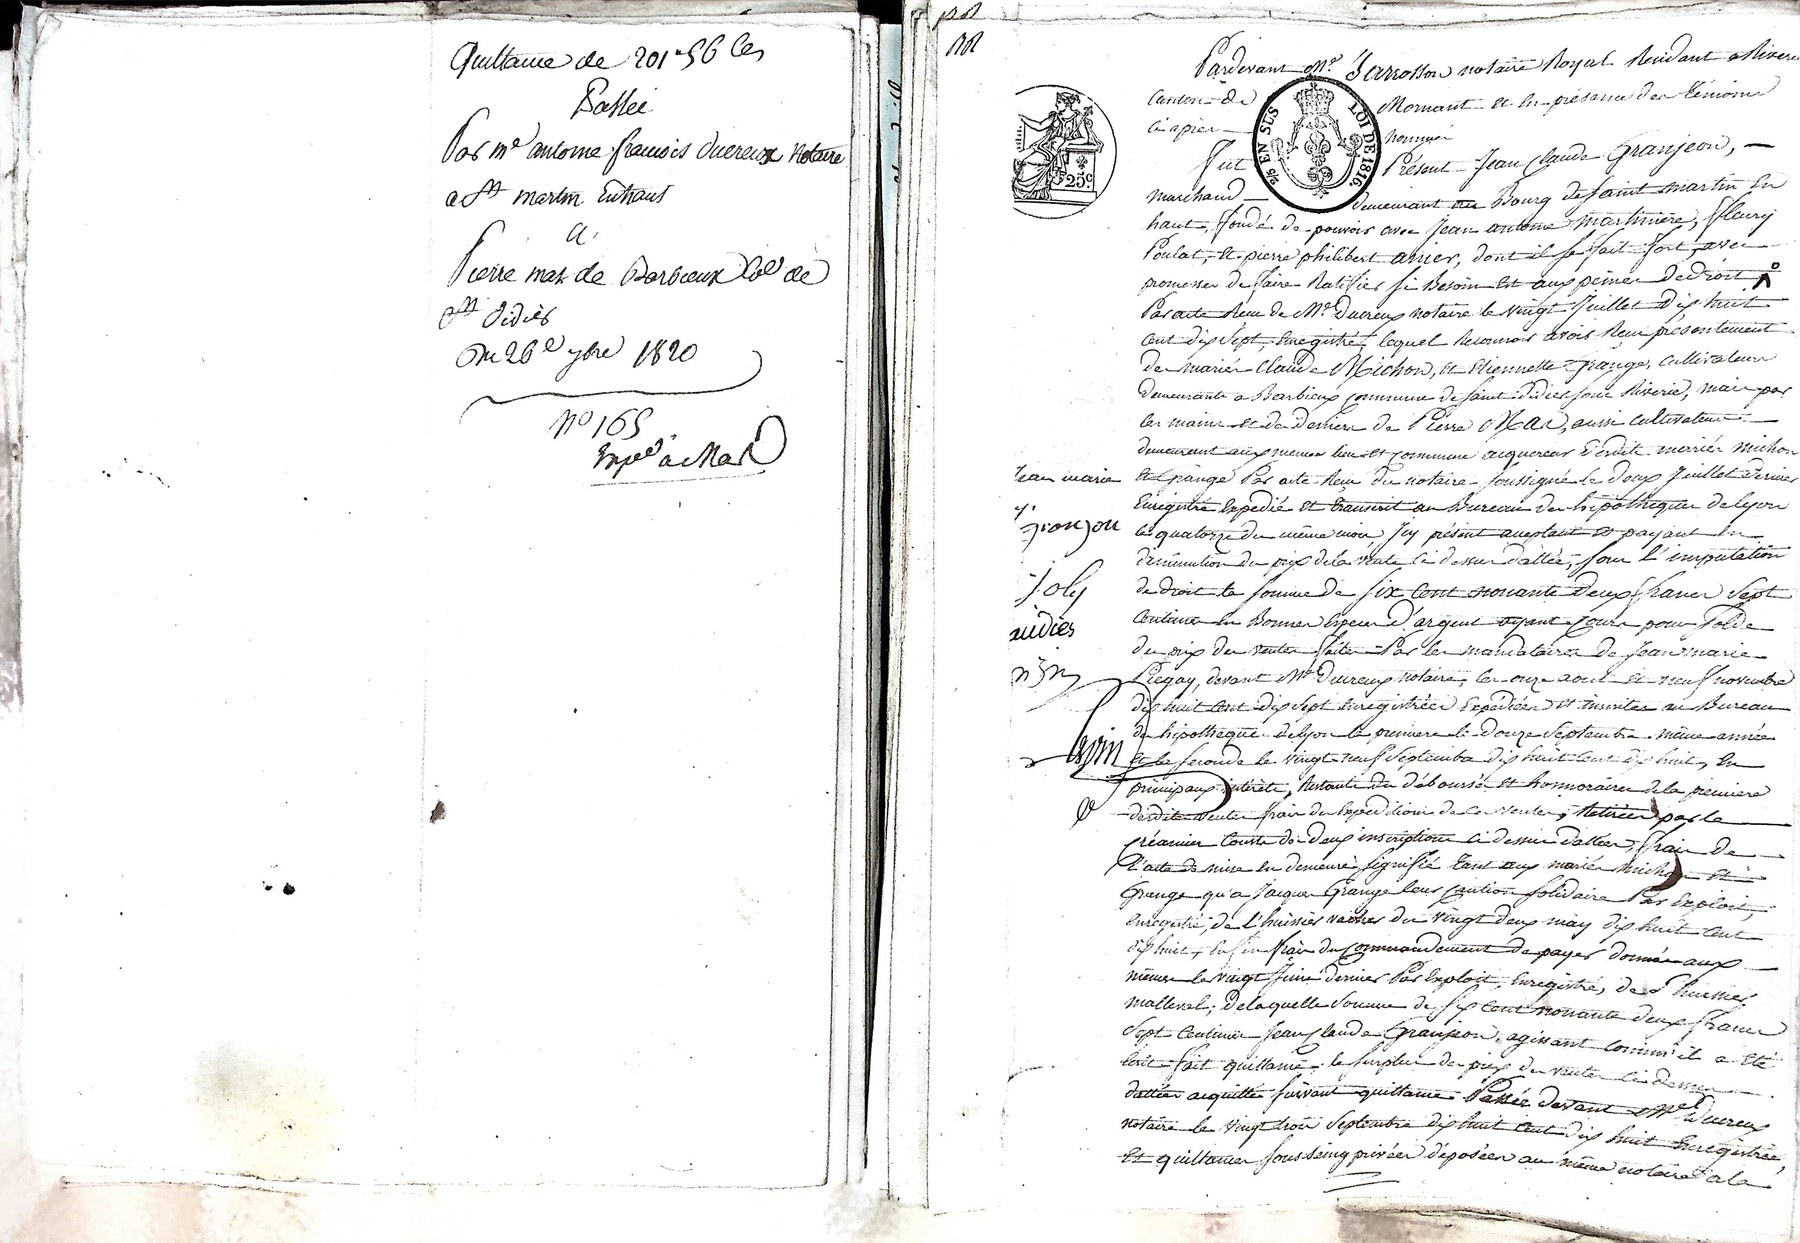 Quittance de 201 f 56 Ces
Passée
Par me antoine françois ducreux Notaire
a St martin Enhaut
A
Pierre mas de Barbieux Cne de
St Didier
Du 26e 7bre 1820
No 165
Exped a Mas
Pardevant Me Jarrosson notaire Royal Résidant a Riverie
Canton de Mornant et En présence des témoins
ci apres nommés
Fut Présent Jean Claude Granjeon,
marchand demeurant au Bourg de Saint martin En
haut, fondé de pouvoir avec Jean antoine martinière, fleury
Poulat, et pierre philibert anier, dont il se fait fort, avec
promesse de faire Ratifier si Besoin Est aux peines de droit
Par acte Reçu de Me Ducreux notaire le vingt Juillet dix huit
cent dix sept, Enregistré, lequel Reconnois avoir Reçu présentement
de mariés Claude Michon, et Etiennette Grange, cultivateurs
demeurants a Barbieux commune de Saint didier sous Riverie, mais par
les mains et des deniers de Pierre Mas, aussi cultivateur
demeurent aux memes lieu et commune acquereur desdits mariés michon
et Grange Par acte Reçu du notaire soussigné le doux Juillet dernier
Enregistré Expédié et transcrit au Bureau des hipotheques de lyon
le quatorze du même mois, Icy présent acceptant et payant En
diminution du prix de la vente ci dessus dattée, sous l'imputation
de droit la somme de six cent nonante deux francs sept
centimes En Bonnes Especes d'argent ayant Cours pour solde
du prix des ventes faites Par les mandataires de Jean marie
Piegay, devant Me Ducreux notaire, les onze aout et neuf novembre
dix huit cent dix sept Enregistrées Expédiées et inscrites au Bureau
des hipotheques de lyon la premiere le douze Septembre même année
et la seconde le vingt neuf Septembre dix huit cent dix huit, En
principaux intérêts, Restants du déboursé et honnoraires de la premiere
desdites ventes frais des Expéditions de ces ventes, Retirées par le
créancier Couts de deux inscriptions ci dessus dattées, frais de
l'acte de mise en demeure signifié tant aux mariés michon et
Grange qu'a Jacques Grange leur caution solidaire Par Exploit,
Enregistré, de l'huissier vacher du vingt deux may dix huit cent
dix huit, Enfin frais du commandement de payer donné aux
mêmes le vingt Juin dernier Par Exploit, Enregistré, de l'huissier
malleval, de laquelle somme de six cent nonante deux francs
sept centimes Jean Claude Granjeon, agissant comme il a Eté
dit fait quittance, le surplus du prix des ventes ci dessus
dattées acquitté suivant quittance Passée devant Me Ducreux
notaire le vingt trois Septembre dix huit cent dix huit Enregistrée,
Et quittances sous seing privées déposées au même notaire a la
Jean marie
gronjon
Joly
audier
LOI DE 1816.
EN SUS
25c